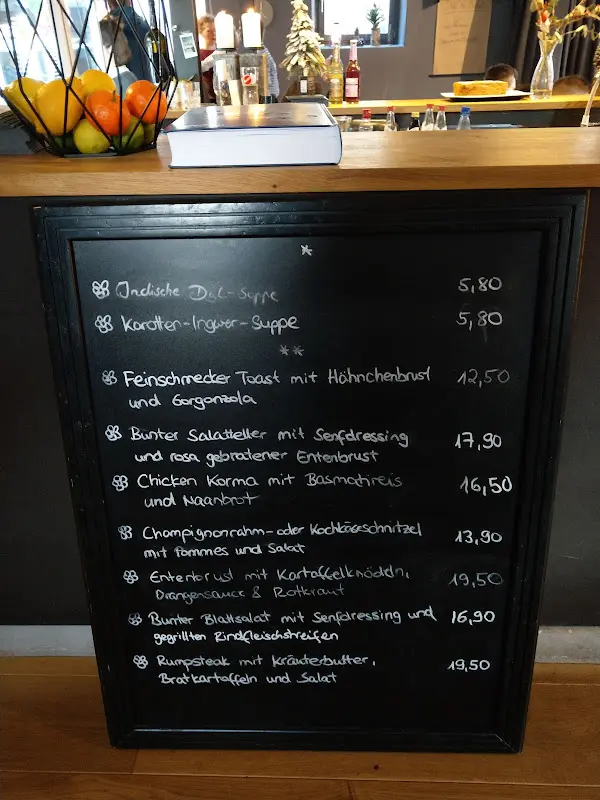 *
Indische Dal-Suppe 5,80
Karotten-Ingwer-Suppe 5,80
**
Feinschmecker Toast mit Hähnchenbrust 12,50
und Gorgonzola
Bunter Salatteller mit Senfdressing 17,90
und rosa gebratener Entenbrust
Chicken Korma mit Basmatireis 16,50
und Naanbrot
Champignonrahm- oder Kochkäseschnitzel 13,90
mit Pommes und Salat
Entenbrust mit Kartoffelknödeln, 19,50
Orangensauce & Rotkraut
Bunter Blattsalat mit Senfdressing und 16,90
gegrillten Rindfleischstreifen
Rumpsteak mit Kräuterbutter, 19,50
Bratkartoffeln und Salat